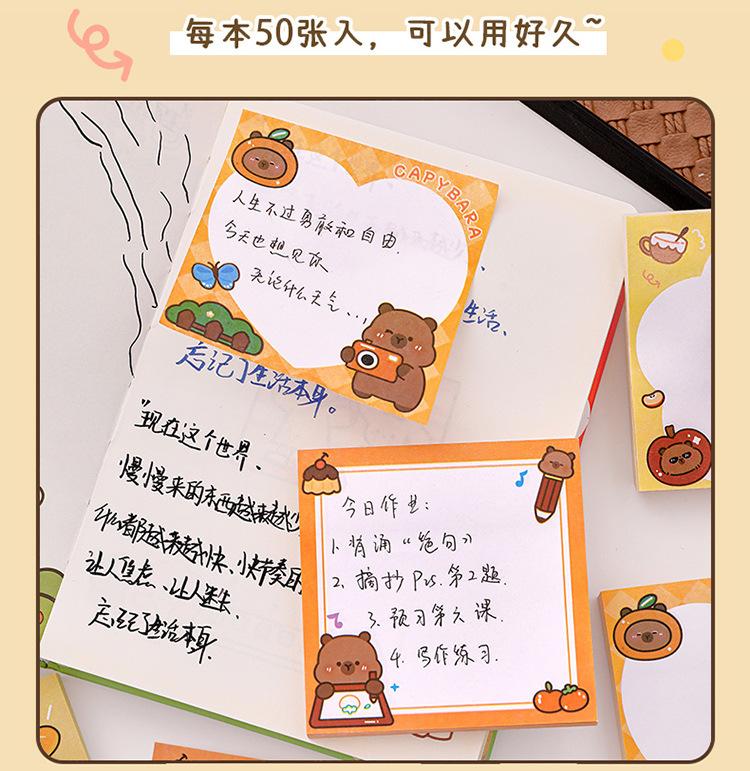 每本50张入，可以用好久~
CAPYBARA
人生不过勇敢和自由.
今天也想见你
无论什么天气...,
生活、
忘记了生活本身。
"现在这个世界、
慢慢来的东西越来越少
什么都越来越快、快节奏的
让人焦虑、让人迷失、
忘记了生活本身.
今日作业:
1. 背诵“绝句》
2. 摘抄 P25. 第2题.
3. 预习第六课.
4. 写作练习.